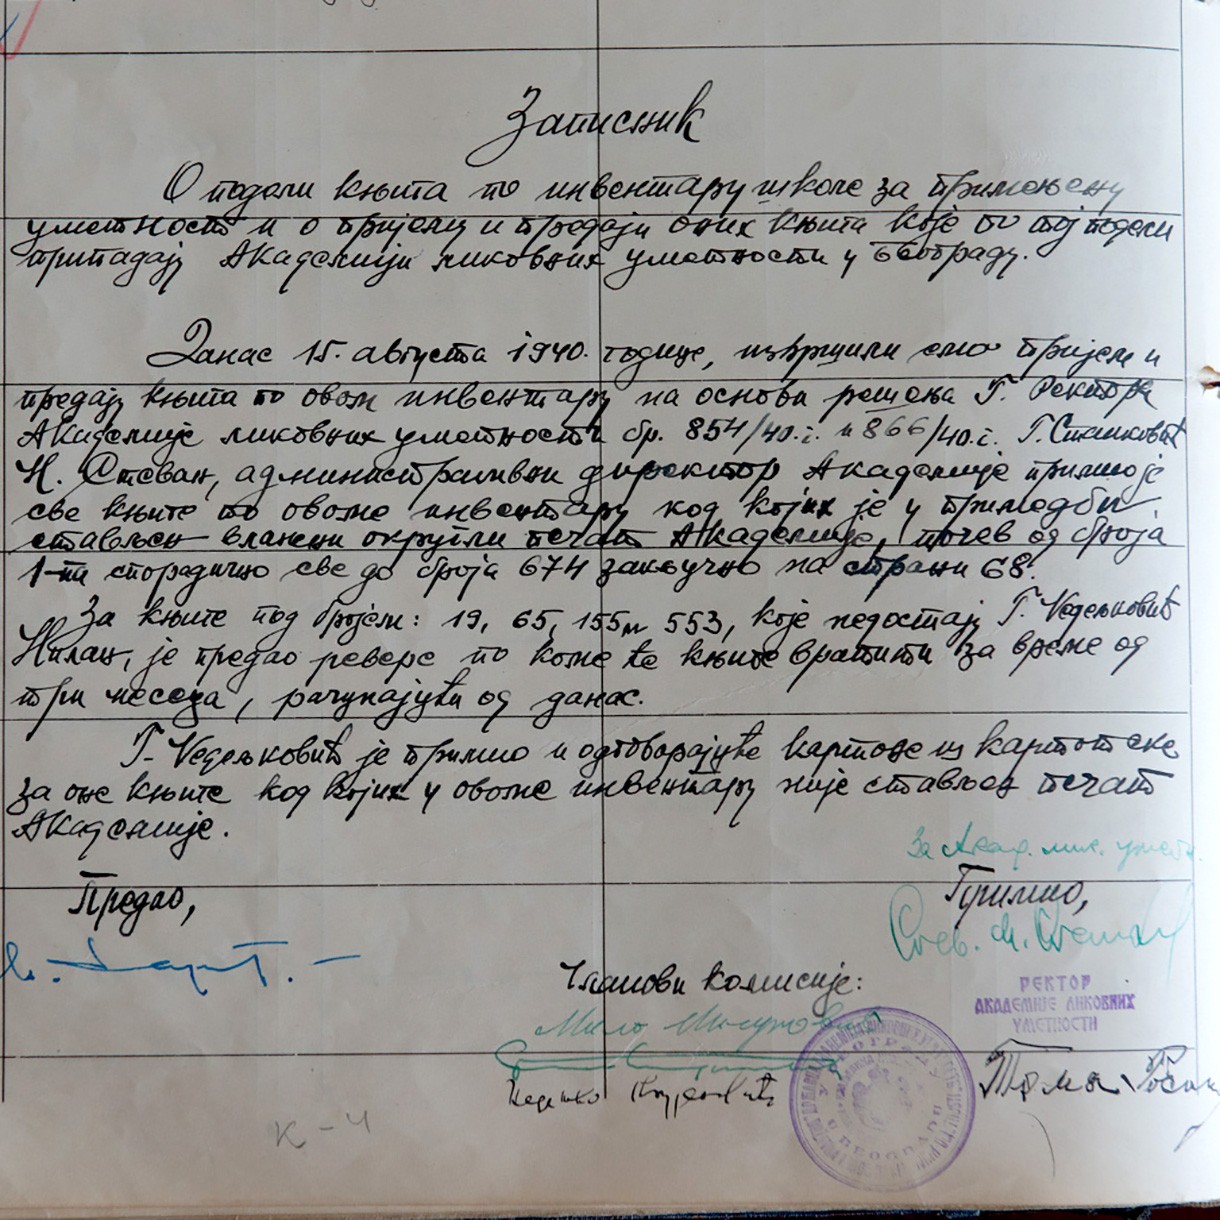 Записник
О подели књига по инвентару школе за примењену
уметност и о пријему и предаји оних књига које по тој подели
припадају Академији ликовних уметности у Београду.
Данас 15. августа 1940. године, извршили смо пријем и
предају књига по овом инвентару на основи решења Г. Ректора
Академије ликовних уметности бр. 854/40.г. и 866/40.г. Г. Станковић
Н. Стеван, административни директор Академије примио је
све књиге по овоме инвентару код којих је у примедби
стављен влажни округли печат Академије, почев од броја
1-ги спорадично све до броја 674 закључно на страни 68.
За књиге под бројем: 19, 65, 155 и 553, које недостају Г. Недељковић
Милан, је предао реверс по коме ће књиге вратити за време од
три месеца, рачунајући од данас.
Г. Недељковић је примио и одговарајуће картоне из картотеке
за оне књиге код којих у овоме инвентару није стављен печат
Академије.
За Акад. лик. умет.
Предао,
Примио,
Стев.
Чланови комисије:
Мило Милуновић
РЕКТОР
АКАДЕМИЈЕ ЛИКОВНИХ
УМЕТНОСТИ
Тома Росан
К-4